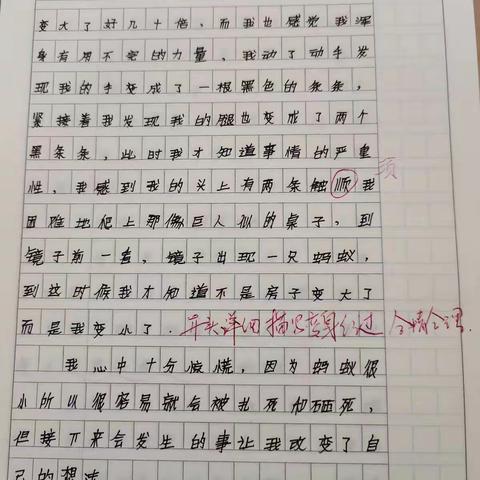 变大了好几十倍，而我也感觉我浑
身有用不完的力量，我动了动手发
现我的手变成了一根黑色的条条，
紧接着我发现我的腿也变成了两个
黑条条，此时我才知道事情的严重
性，我感到我的头上有两条触顺我
须
困难地爬上那像巨人似的桌子，到
镜子前一看，镜子出现一只蚂蚁，
到这时候我才知道不是房子变大了
而是我变小了．开头详细描写变身经过 合情合理．
我心中十分惊慌，因为蚂蚁很
小所以很容易就会被扎死和砸死，
但接下来会发生的事让我改变了自
己的想法